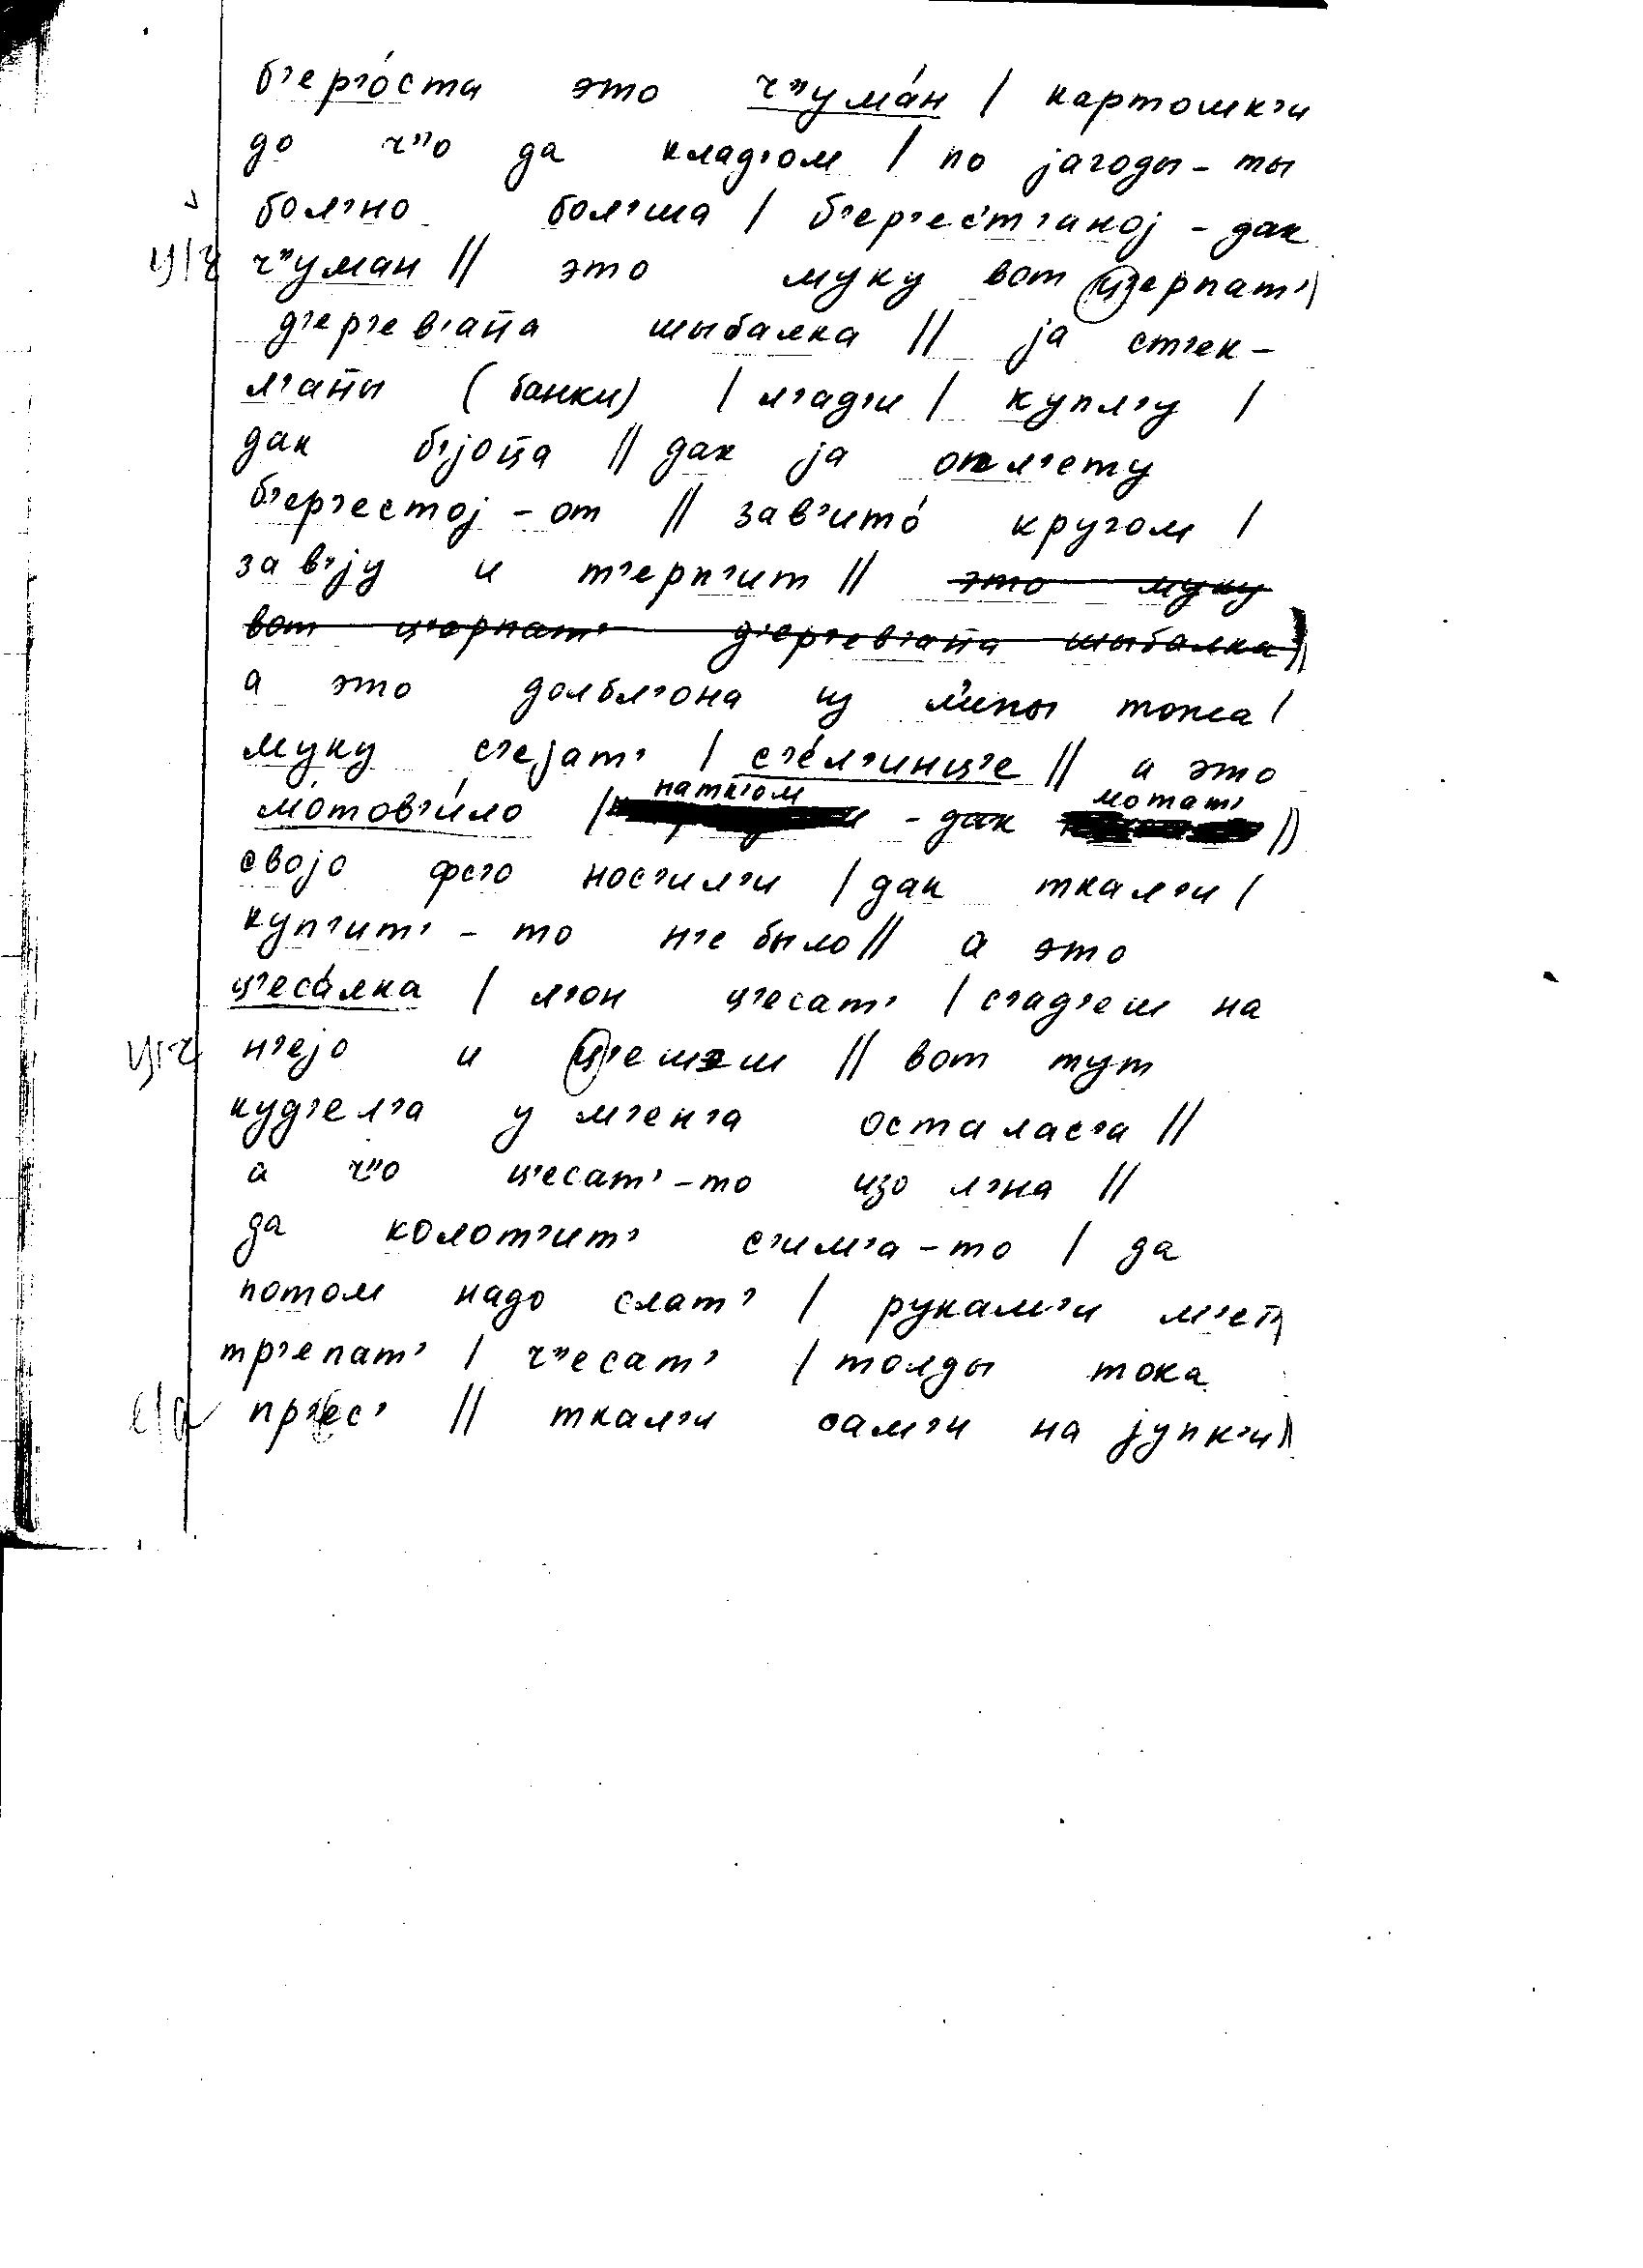 б’ер’о́ста это ч”ума́н / картошк’и
до ч”о да клад’ом / по јагоды-ты
бол’но бол’ша / б’ер’ест’аној - дак
ц/ч ч”уман // это муку вот ц’ерпат’ //
д’ер’ев’ан̄а шыбалка // ја ст’ек-
л’ан̄ы (банки) / л’ад’и / купл’у /
дак б’јоц̄а // дак ја опл’ету
б’ер’естој - от // зав’ито́ кругом /
зав’ју и т’ерп’ит // это муку
вот ц’ерпат’ д’ер’ев’ан̄а шыбалка //
а это долбл’она из л’ипы тожа /
муку с’ејат’ / с’е́л’инц’е // а это
мо́тов’и́ло / натк’ом - дак мотат’ //
својо фс’о нос’ил’и / дак ткал’и /
куп’ит’ - то н’е было // а это
ц’еса́лка / л’он ц’есат’ / с’ад’еш на
ц/ч н’ејо и ц’ешэш // вот тут
куд’ел’а у м’ен’а осталас’а //
а ч”о ц’есат’-то изо л’на //
да колот’ит’ с’им’а-то / да
потом надо слат’ / рукам’и м’ет̄ //
тр’епат’ / ч”есат’ / толды тока
е/а пр’ес’ // ткал’и сам’и на јупк’и //